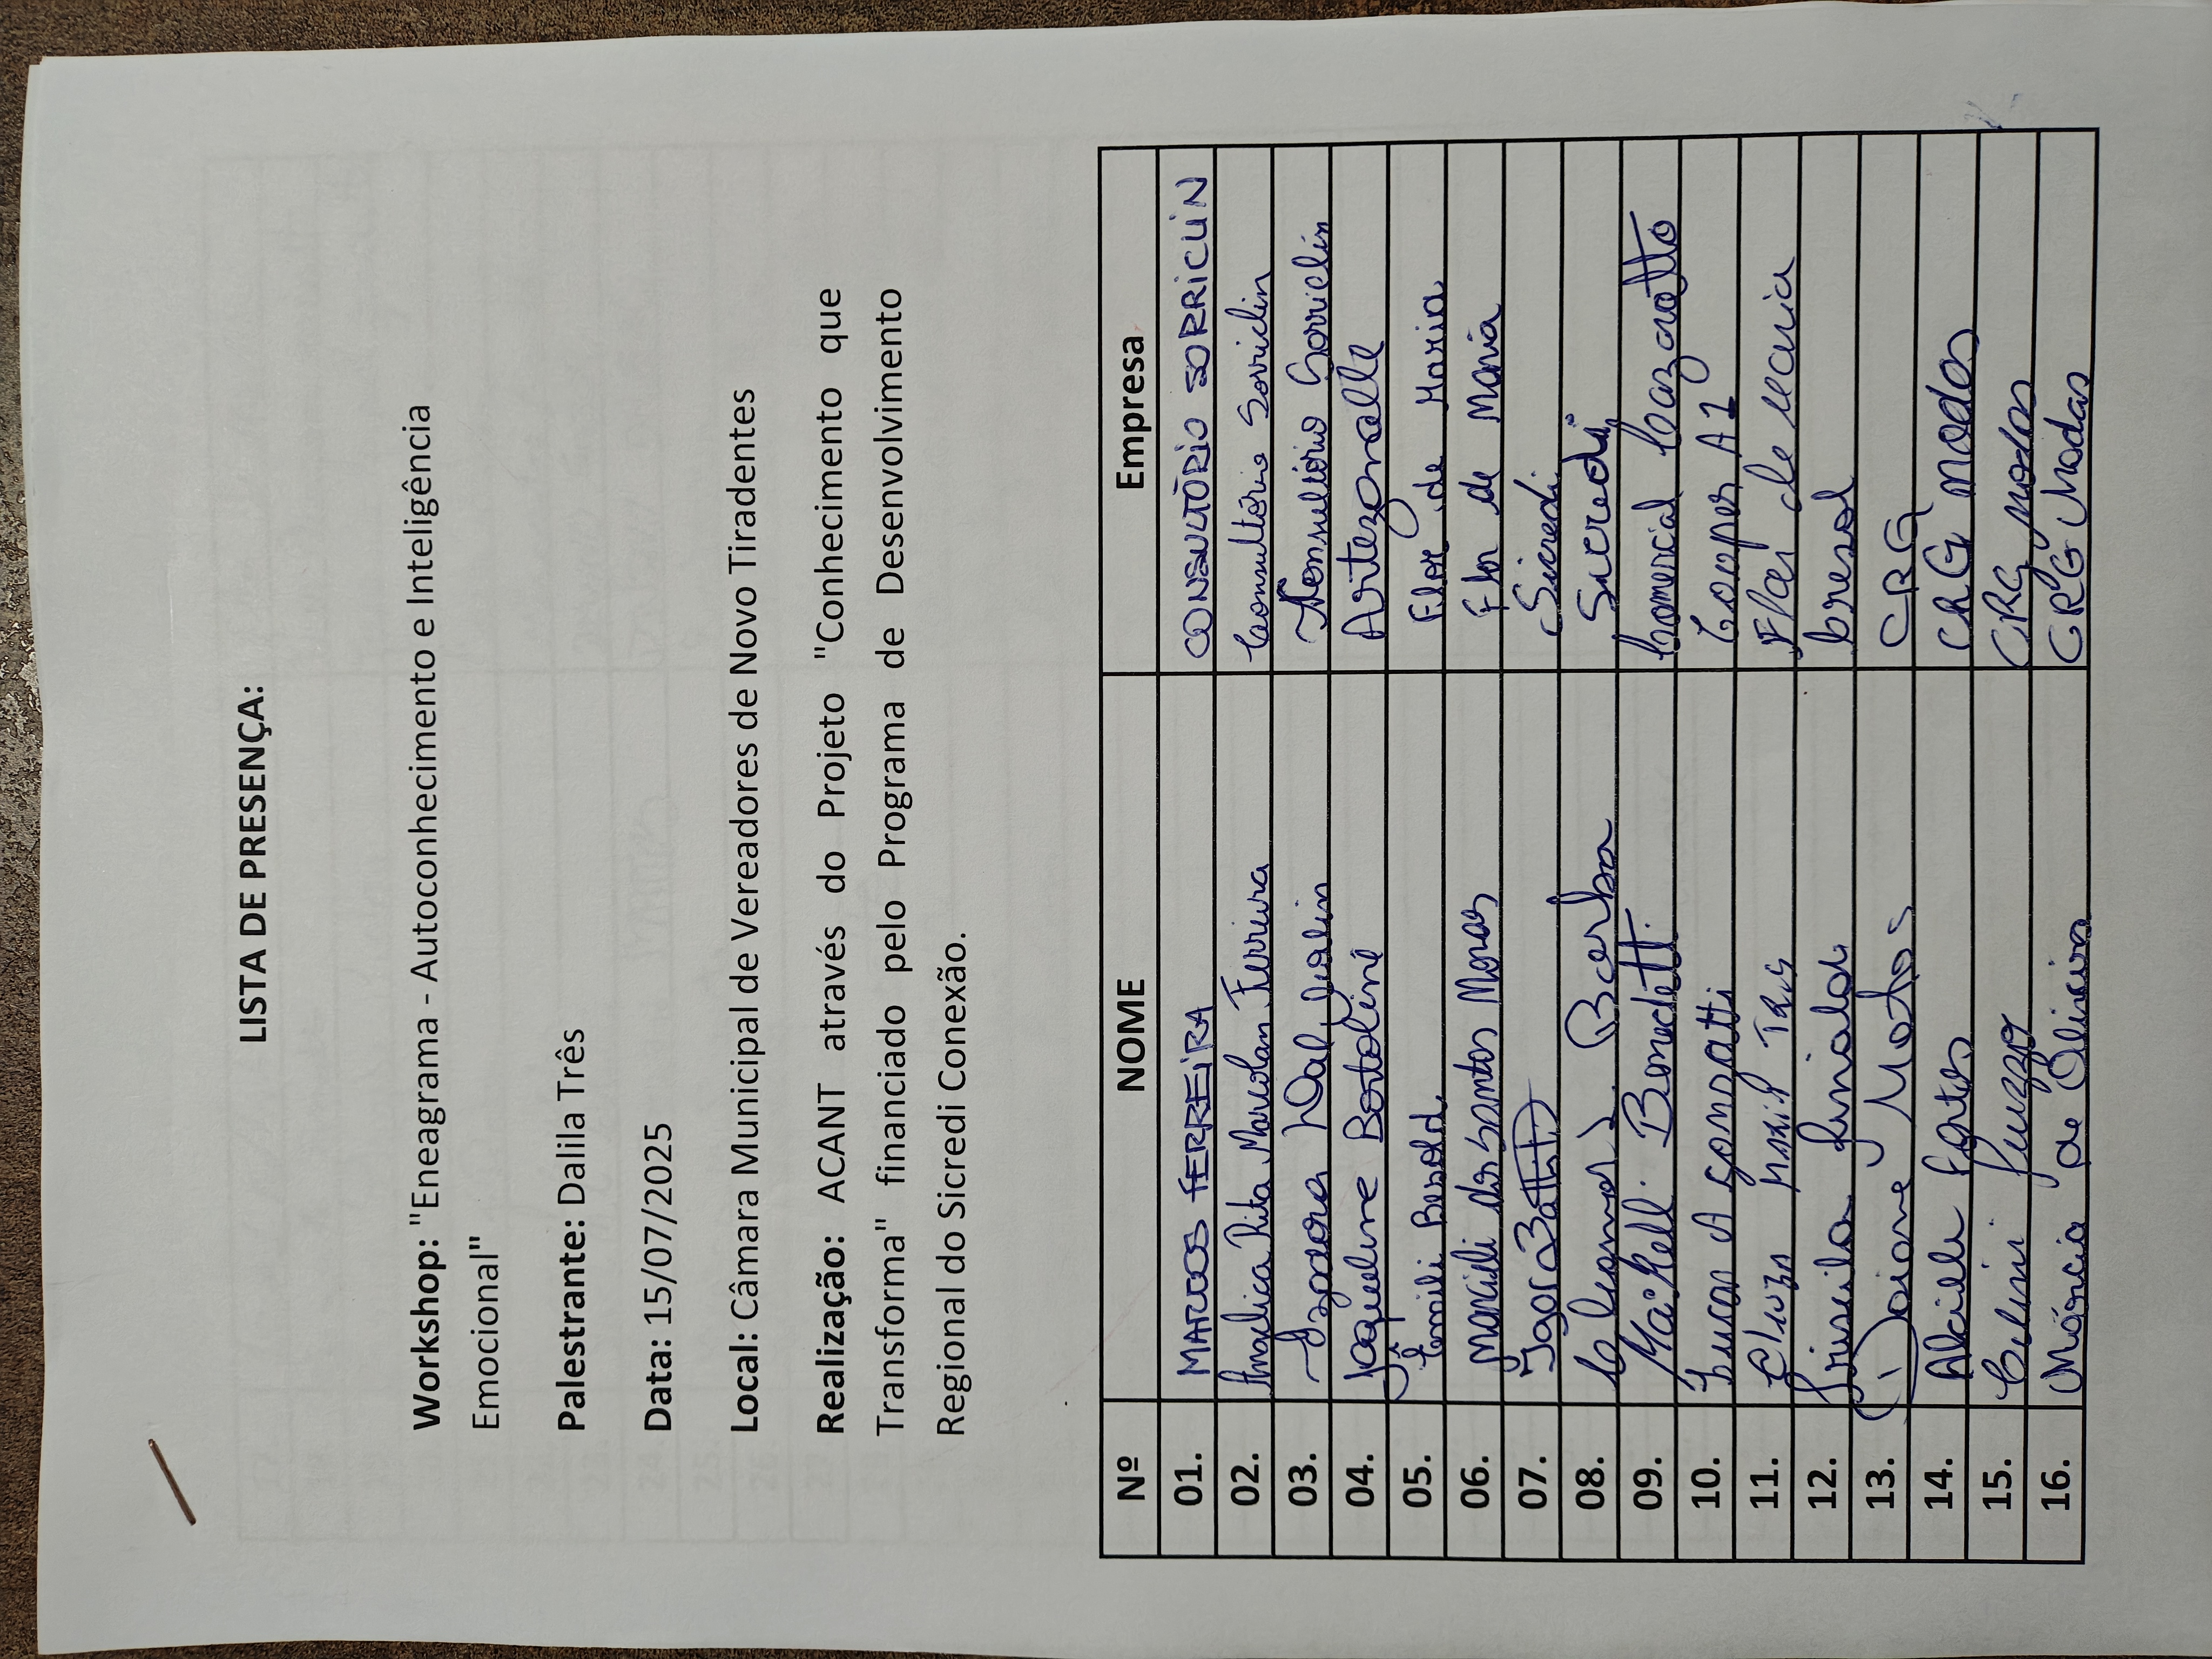 LISTA DE PRESENÇA:
Workshop: "Eneagrama - Autoconhecimento e Inteligência
Emocional"
Palestrante: Dalila Três
Data: 15/07/2025
Local: Câmara Municipal de Vereadores de Novo Tiradentes
Realização: ACANT através do Projeto "Conhecimento que
Transforma" financiado pelo Programa de Desenvolvimento
Regional do Sicredi Conexão.
Nº NOME Empresa
01. MARCOS FERREIRA CONSULTÓRIO SORRICLIN
02. Angelica Rita Marcolan Ferreira Consultório Sorriclin
03. Isadora Dal Consultório Sorriclin
04. Jaqueline Bortolini Artezanalle
05. Kemili Besold Flor de Maria
06. Marcieli dos Santos Moraes Flor de Maria
07. Sicredi
08. Barbosa Sicredi
09. Maikell Benedetti Comercial Cazarotto
10. Lucas A Gonzatti Cooper A1
11. Flor de Maria
12. Cresol
13. Daiane Matos CRG
14. Fontes CRG Modas
15. CRG modas
16. Márcia de Oliveira CRG Modas